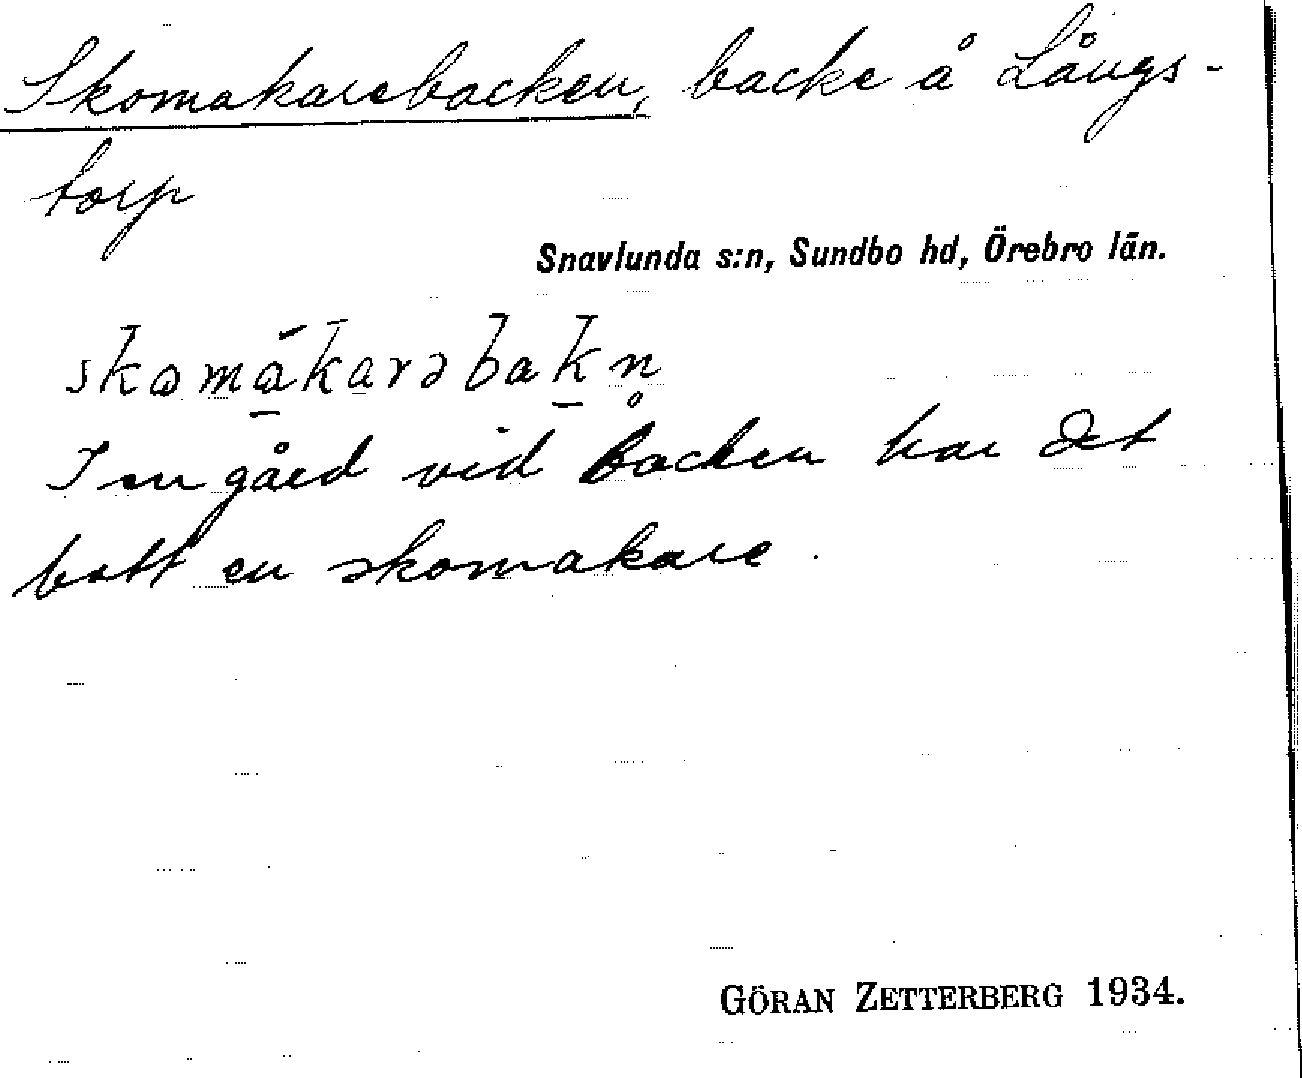 Skomakarebacken, backe å Långs-
torp
Snavlunda s:n, Sundbo hd, Örebro län.
skomákarəbakn̥
I en gård vid backen har det
bott en skomakare.
GÖRAN ZETTERBERG 1934.